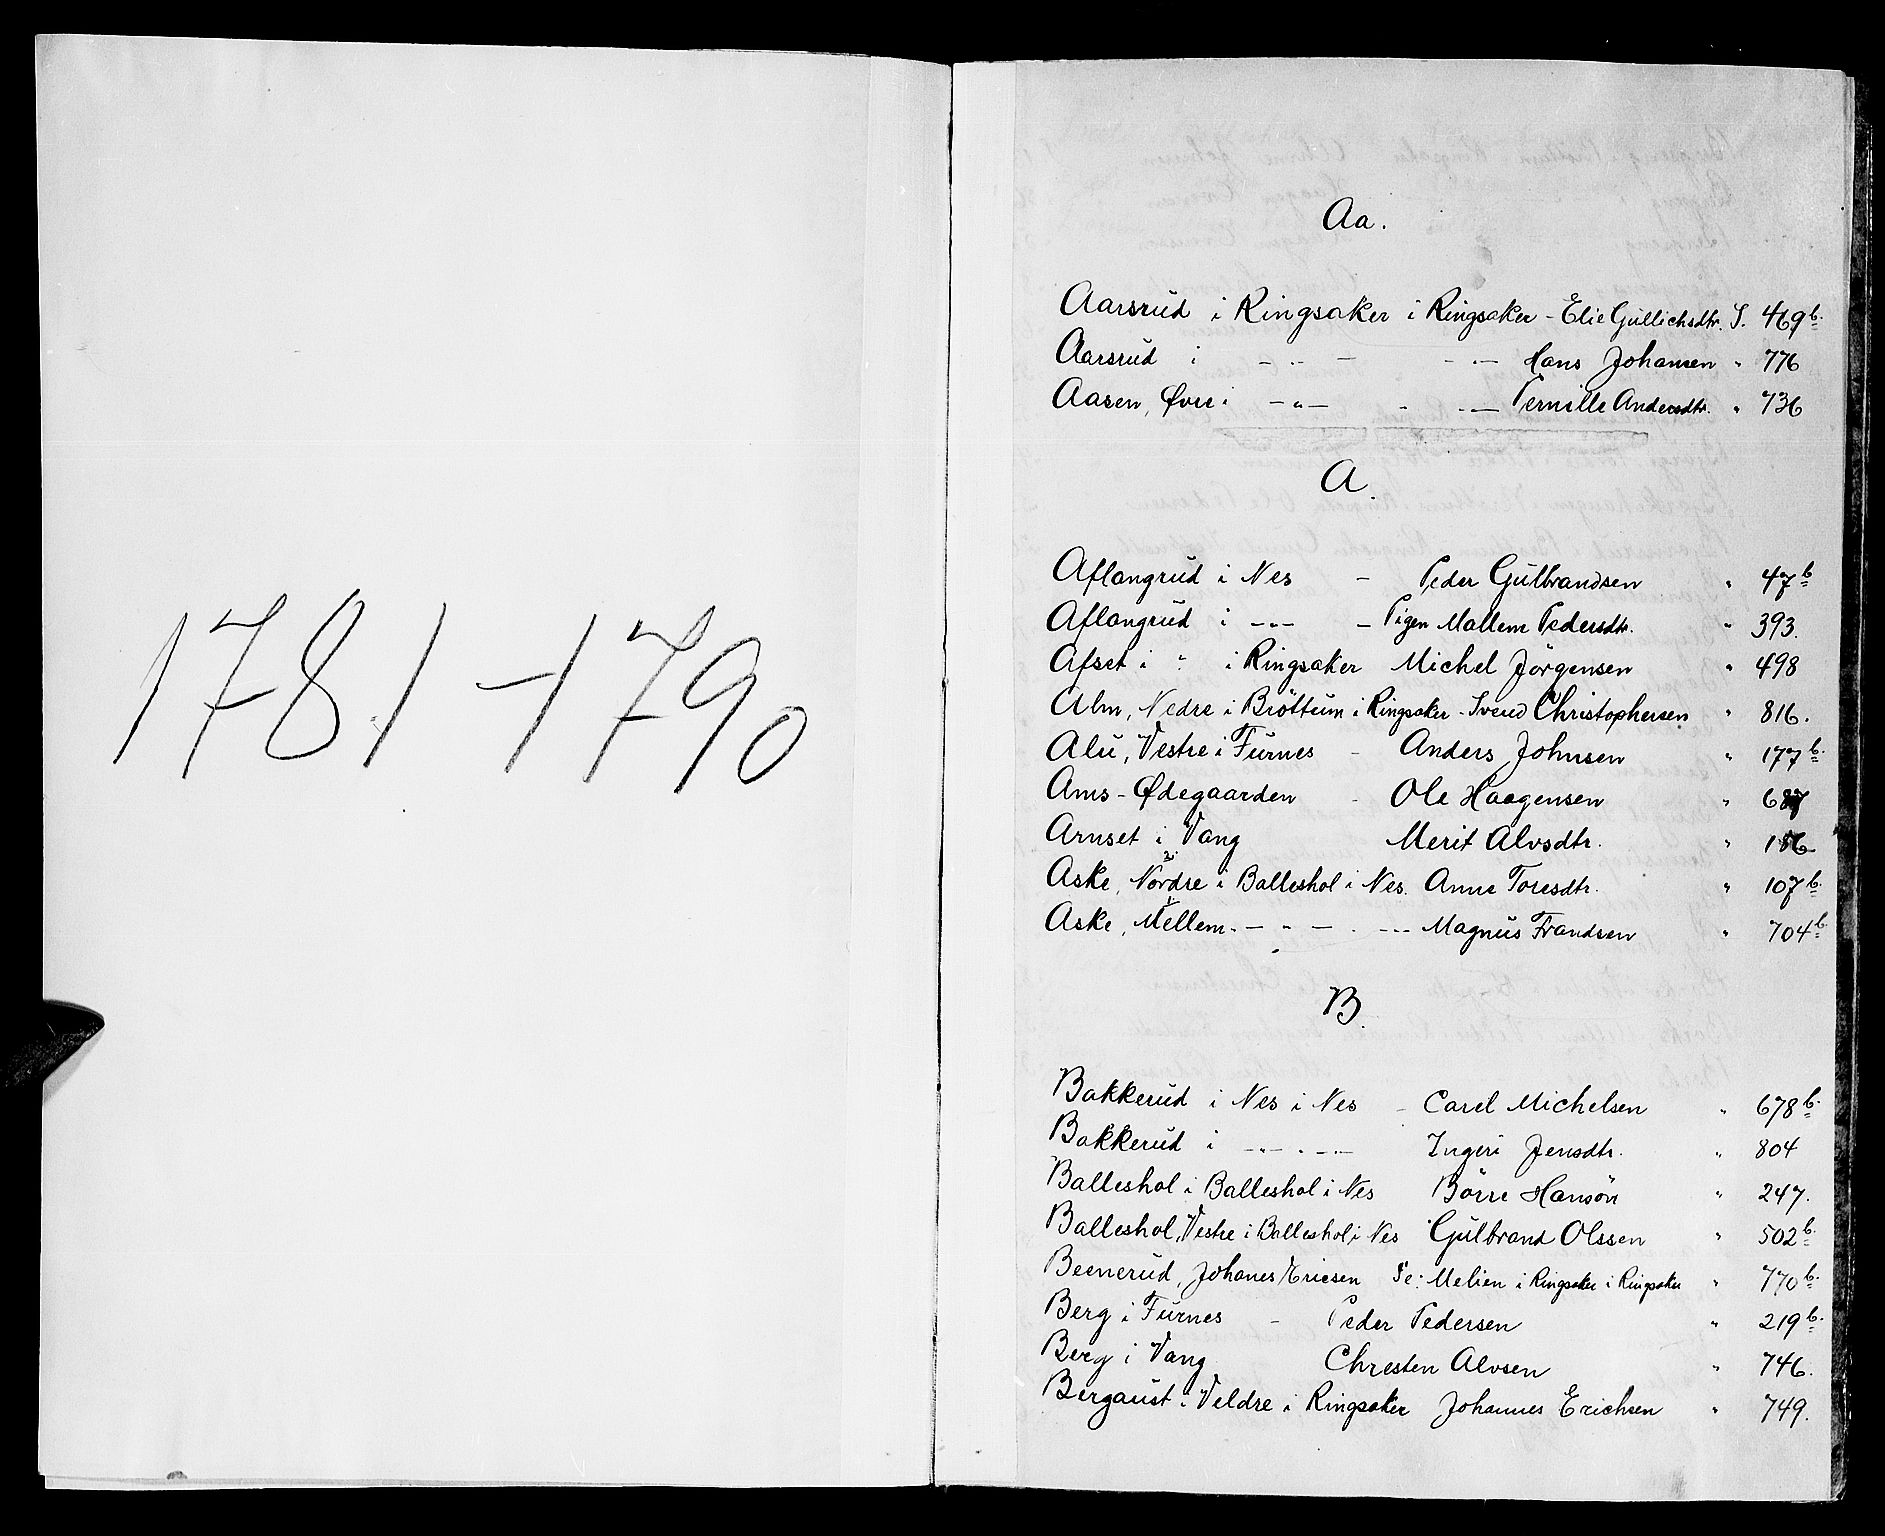 1781-1790
Aa.
Aarsrud i Ringsaker i Ringsaker - Elie Gullichsdtr. S. 469 b.
Aarsrud i - „ - - „ - Hans Johansen „ 776
Aasen, Øvre i - „ - „ - „ - Pernille Andersdtr. „ 736
A.
Aflangrud i Nes - Peder Gulbrandsen „ 47 b
Aflangrud i - „ - - Pigen Mallem Pedersdtr. „ 393.
Afset i „ i Ringsaker Michel Jörgensen „ 498
Alm, Nedre i Bröttum i Ringsaker - Svend Christophersen „ 816.
Alu, Vestre i Furnes - Anders Johnsen „ 177 b.
Ams-Ødegaarden - Ole Haagensen „
Arnset i Vang Merit Alvsdtr. „
Aske, Nordre i Balleshol i Nes. Anne Toresdtr. „ 107 b.
Aske, Mellem - „ - - „ - Magnus Frandsen „ 704 b.
B.
Bakkerud i Nes i Nes - Carel Michelsen „ 678 b.
Bakkerud i - „ - „ - „ - Ingeri Jensdtr. „ 804
Balleshol i Balleshol i Nes Börre Hansön „ 247.
Balleshol, Vestre i Balleshol i Nes Gulbrand Olssen „ 502 b.
Beenerud, Johanes Ericsen Se: Melien i Ringsaker i Ringsaker „ 770 b.
Berg i Furnes - Peder Pedersen „ 219 b.
Berg i Vang Chresten Alvsen „ 746.
Bergaust i Veldre i Ringsaker Johannes Erichsen „ 749.